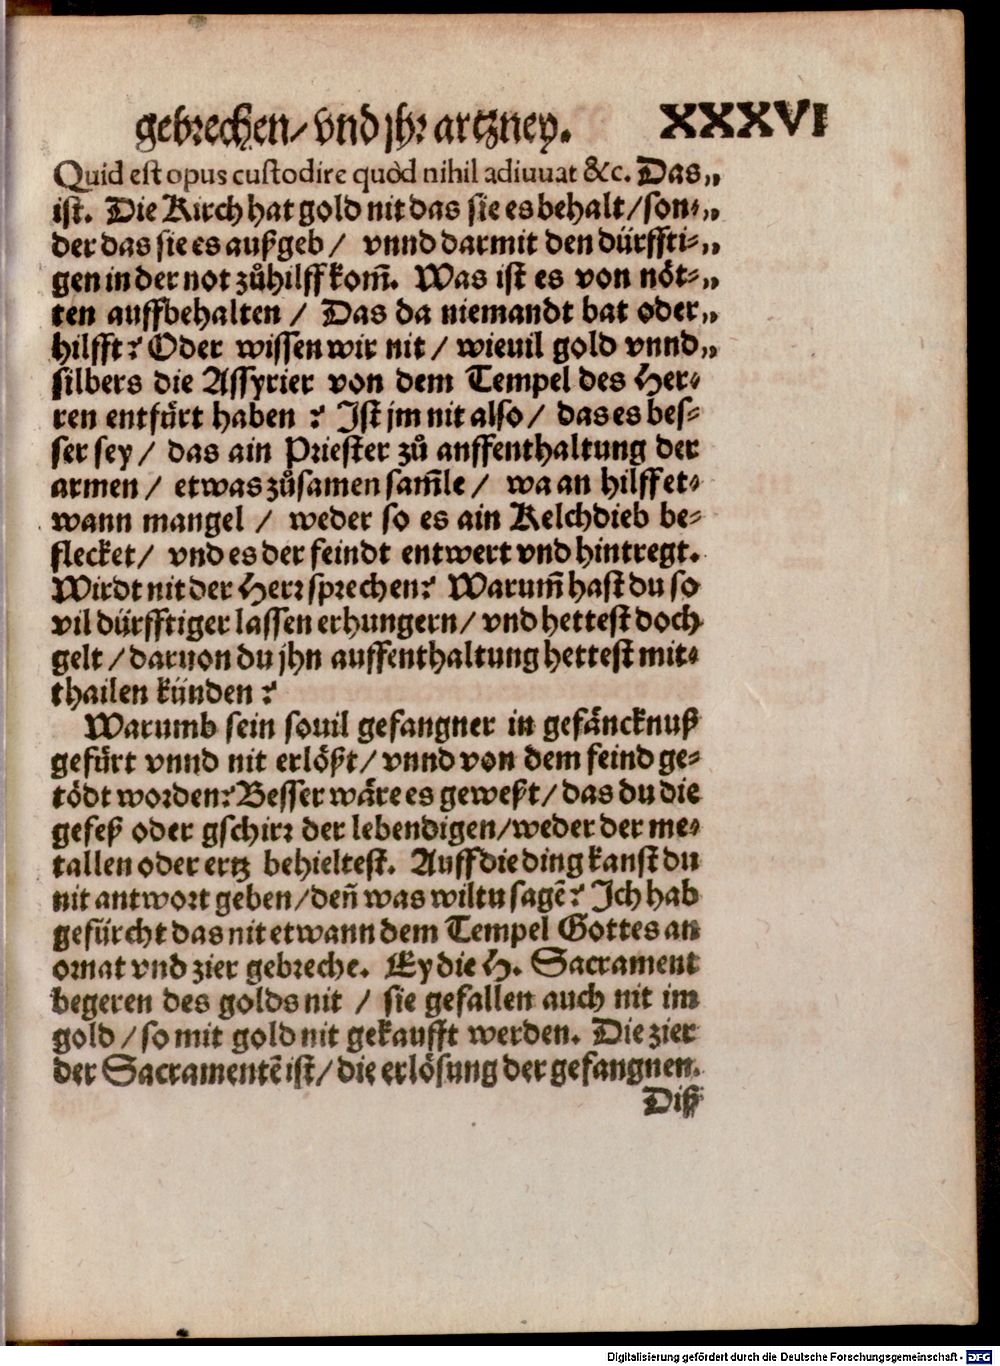 gebrechen/ vnd jhr artzney. XXXVI
Quid est opus custodire quòd nihil adiuuat &c. Das„
ist. Die Kirch hat gold nit das sie es behalt/son⸗„
der das sie es außgeb/ vnnd darmit den dürffti⸗„
gen in der not zůhilff kom̃. Was ist es von nöt⸗„
ten auffbehalten / Das da niemandt bat oder„
hilfft? Oder wissen wir nit / wieuil gold vnnd„
silbers die Assyrier von dem Tempel des Her⸗
ren entfürt haben ? Ist jm nit also / das es bes⸗
ser sey / das ain Priester zů anffenthaltung der
armen / etwas zůsamen sam̃le / wa an hilff et⸗
wann mangel / weder so es ain Kelchdieb be⸗
flecket/ vnd es der feindt entwert vnd hintregt.
Wirdt nit der Herr sprechen? Warum̃ hast du so
vil dürfftiger lassen erhungern/ vnd hettest doch
gelt / daruon du jhn auffenthaltung hettest mit⸗
thailen künden ?
Warumb sein souil gefangner in gefäncknuß
gefürt vnnd nit erlößt/ vnnd von dem feind ge⸗
tödt worden? Besser wäre es geweßt/ das du die
gefeß oder gschirr der lebendigen/weder der me⸗
tallen oder ertz behieltest. Auff die ding kanst du
nit antwort geben/deñ was wiltu sagẽ? Ich hab
gefürcht das nit etwann dem Tempel Gottes an
ornat vnd zier gebreche. Ey die H. Sacrament
begeren des golds nit / sie gefallen auch nit im
gold / so mit gold nit gekaufft werden. Die zier
der Sacramentẽ ist/ die erlösung der gefangnen.
Diß
Digitalisierung gefördert durch die Deutsche Forschungsgemeinschaft - DFG